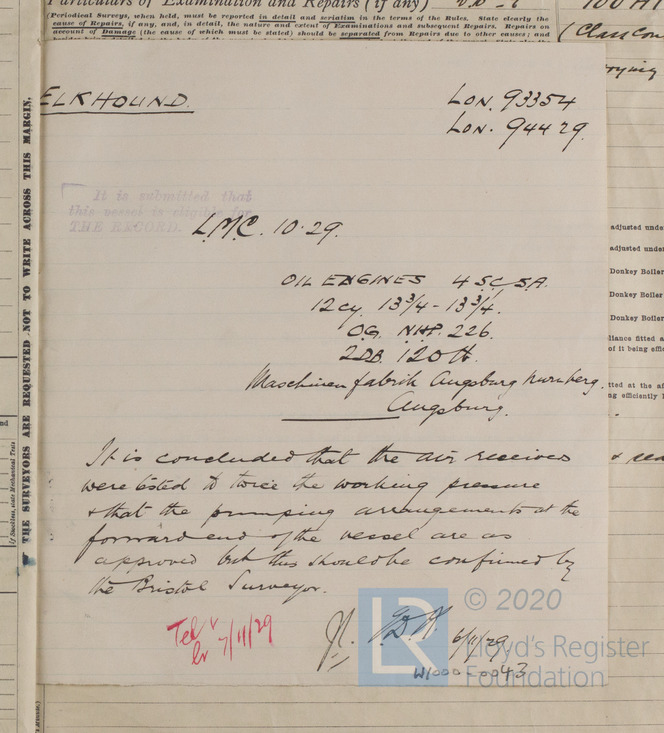 Particulars of Examination and Repairs (if any)
(Periodical Surveys, when held, must be reported in detail and seriatim in the terms of the Rules. State clearly the
cause of Repairs, if any, and, in detail, the nature and extent of Examinations and subsequent Repairs. Repairs on
account of Damage (the cause of which must be stated) should be separated from Repairs due to other causes; and
(Class Con
THE SURVEYORS ARE REQUESTED NOT TO WRITE ACROSS THIS MARGIN.
ELKHOUND.
LON. 93354
LON. 94429.
It is submitted that
this vessel is eligible for
THE RECORD. LMC. 10.29.
OIL ENGINES 4 S.C. S.A.
12 cy. 13 3/4 - 13 3/4.
O.G. NHP. 226.
2DB. 120 lb.
Maschinenfabrik Augsburg Nurnberg.
Augsburg.
It is concluded that the air receivers
were tested to twice the working pressure
& that the pumping arrangements at the
forward end of the vessel are as
approved but this should be confirmed by
the Bristol Surveyor.
7/11/29
6/11/29
W1000-0043
adjusted unde
adjusted unde
Donkey Boiler
Donkey Boiler
Donkey Boiler
liance fitted a
of it being effi
tted at the af
ng efficiently
LR
© 2020
Lloyd's Register
Foundation